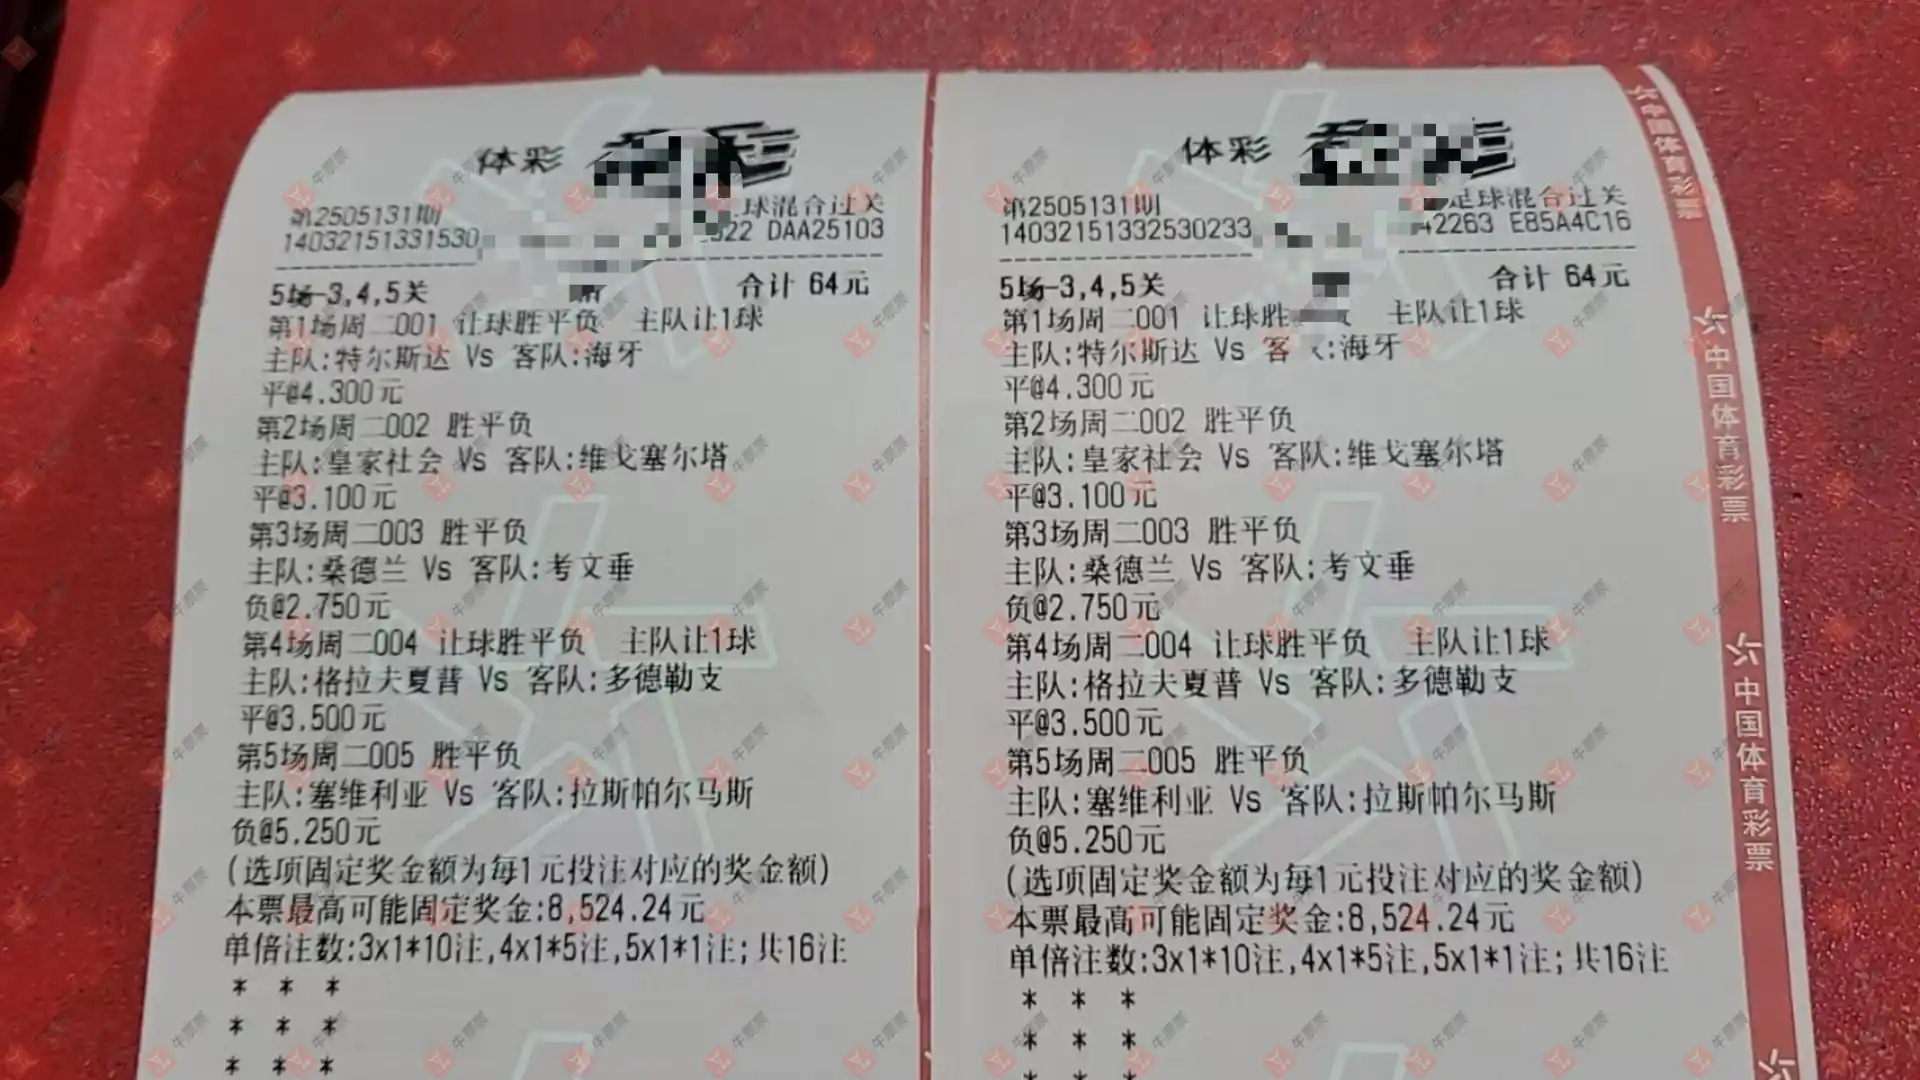 体彩
第2505131期
球混合过关
14032151331530
522 DAA25103
5场-3,4,5关
合计 64元
第1场周二001 让球胜平负 主队让1球
主队:特尔斯达 Vs 客队:海牙
平@4.300元
第2场周二002 胜平负
主队:皇家社会 Vs 客队:维戈塞尔塔
平@3.100元
第3场周二003 胜平负
主队:桑德兰 Vs 客队:考文垂
负@2.750元
第4场周二004 让球胜平负 主队让1球
主队:格拉夫夏普 Vs 客队:多德勒支
平@3.500元
第5场周二005 胜平负
主队:塞维利亚 Vs 客队:拉斯帕尔马斯
负@5.250元
(选项固定奖金额为每1元投注对应的奖金额)
本票最高可能固定奖金:8,524.24元
单倍注数:3x1*10注,4x1*5注,5x1*1注;共16注
* * *
* * *
* * *
体彩
第2505131期
足球混合过关
14032151332530233
42263 E85A4C16
5场-3,4,5关
合计 64元
第1场周二001 让球胜 主队让1球
主队:特尔斯达 Vs 客 :海牙
平@4.300元
第2场周二002 胜平负
主队:皇家社会 Vs 客队:维戈塞尔塔
平@3.100元
第3场周二003 胜平负
主队:桑德兰 Vs 客队:考文垂
负@2.750元
第4场周二004 让球胜平负 主队让1球
主队:格拉夫夏普 Vs 客队:多德勒支
平@3.500元
第5场周二005 胜平负
主队:塞维利亚 Vs 客队:拉斯帕尔马斯
负@5.250元
(选项固定奖金额为每1元投注对应的奖金额)
本票最高可能固定奖金:8,524.24元
单倍注数:3x1*10注,4x1*5注,5x1*1注;共16注
* * *
* * *
* * *
中国体育彩票
中国体育彩票
中国体育彩票
牛票票